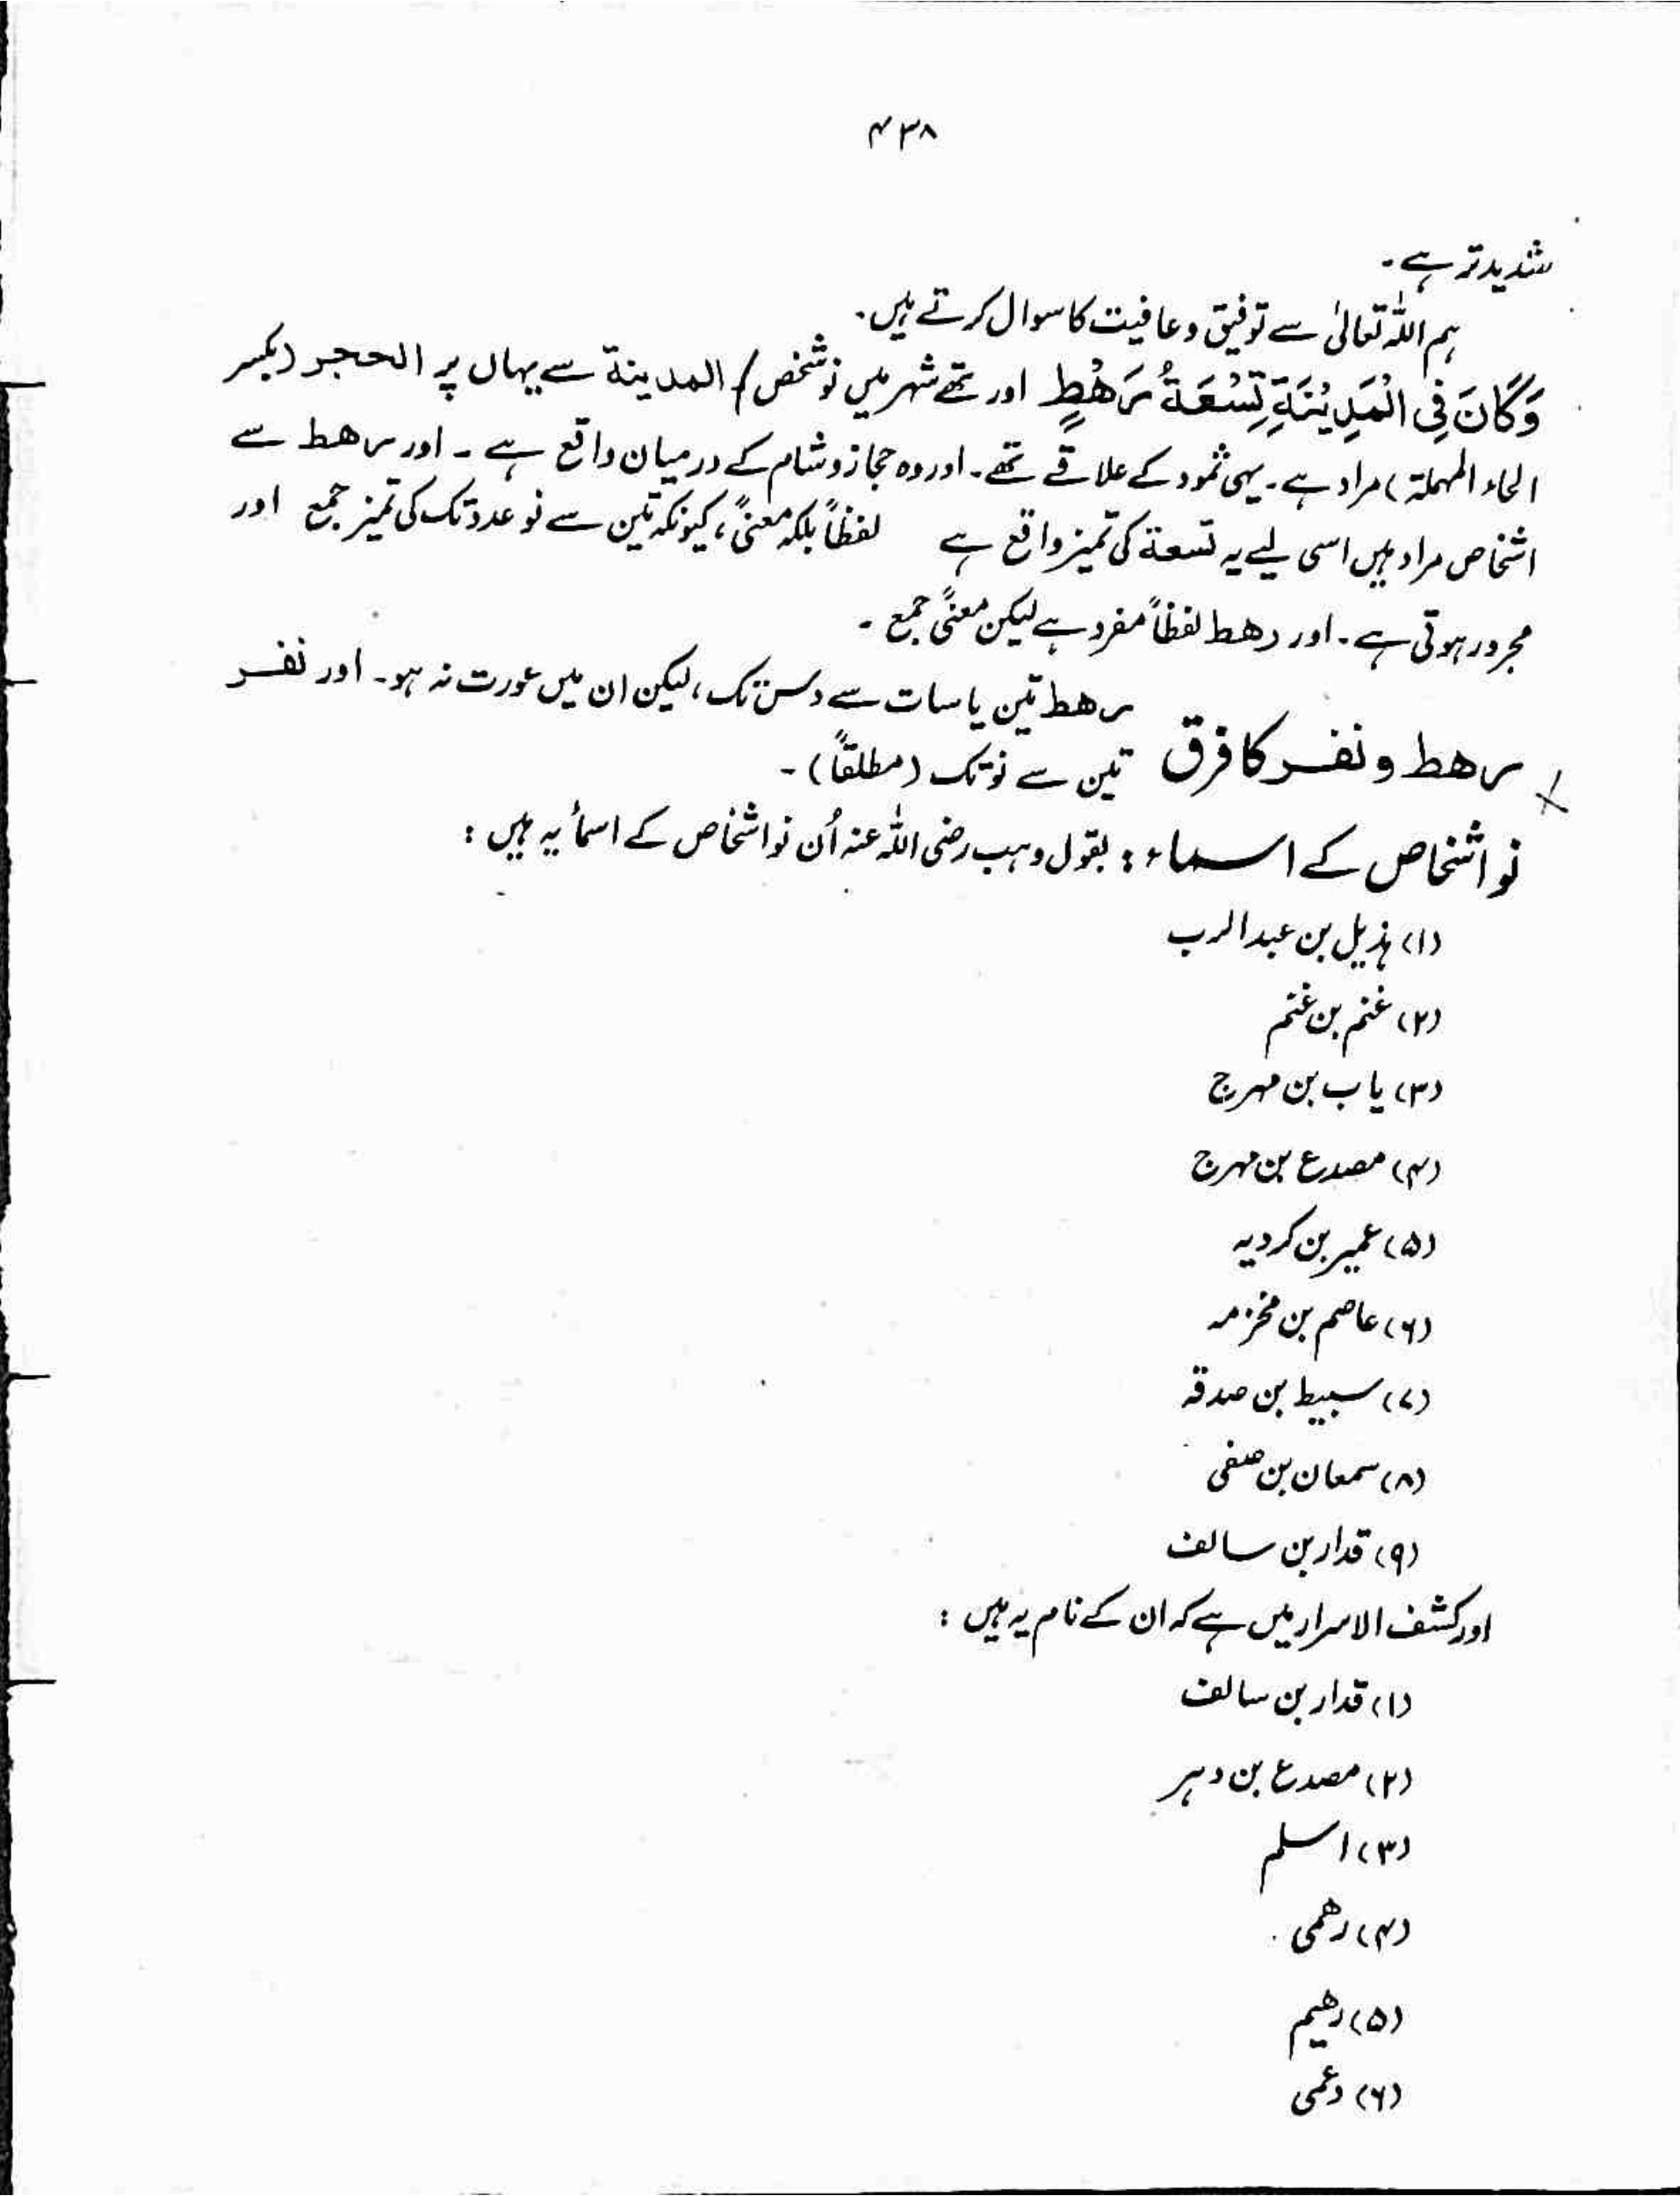 ۴۳۸
شدید تر ہے۔
ہم اللہ تعالیٰ سے توفیق و عافیت کا سوال کرتے ہیں۔
وَكَانَ فِي الْمَدِيْنَةِ تِسْعَةُ رَهْطٍ اور تھے شہر میں نو شخص / المدينة سے یہاں پر الحجر (بکسر
الحاء المہملۃ) مراد ہے۔ یہی ثمود کے علاقے تھے۔ اور وہ حجاز و شام کے درمیان واقع ہے ۔ اور رهط سے
اشخاص مراد ہیں اسی لیے یہ تسعۃ کی تمیز واقع ہے لفظاً بلکہ معنیً، کیونکہ تین سے نو عدد تک کی تمیز جمع اور
مجرور ہوتی ہے۔ اور رهط لفظاً مفرد ہے لیکن معنًی جمع ۔
رهط تین یا سات سے دس تک، لیکن ان میں عورت نہ ہو۔ اور نفر
رهط و نفر کا فرق تین سے نو تک (مطلقاً) ۔
نو اشخاص کے اسماء : بقول وہب رضی اللہ عنہ اُن نو اشخاص کے اسمأ یہ ہیں :
(۱) ہذیل بن عبد الرب
(۲) غنم بن غنم
(۳) یاب بن مہرج
(۴) مصدع بن مہرج
(۵) عمیر بن کردیہ
(۶) عاصم بن مخزمہ
(۷) سبیط بن صدقہ
(۸) سمعان بن صفی
(۹) قدار بن سالف
اور کشف الاسرار میں ہے کہ ان کے نام یہ ہیں :
(۱) قدار بن سالف
(۲) مصدع بن دہر
(۳) اسلم
(۴) رهمی
(۵) رهیم
(۶) دعمی